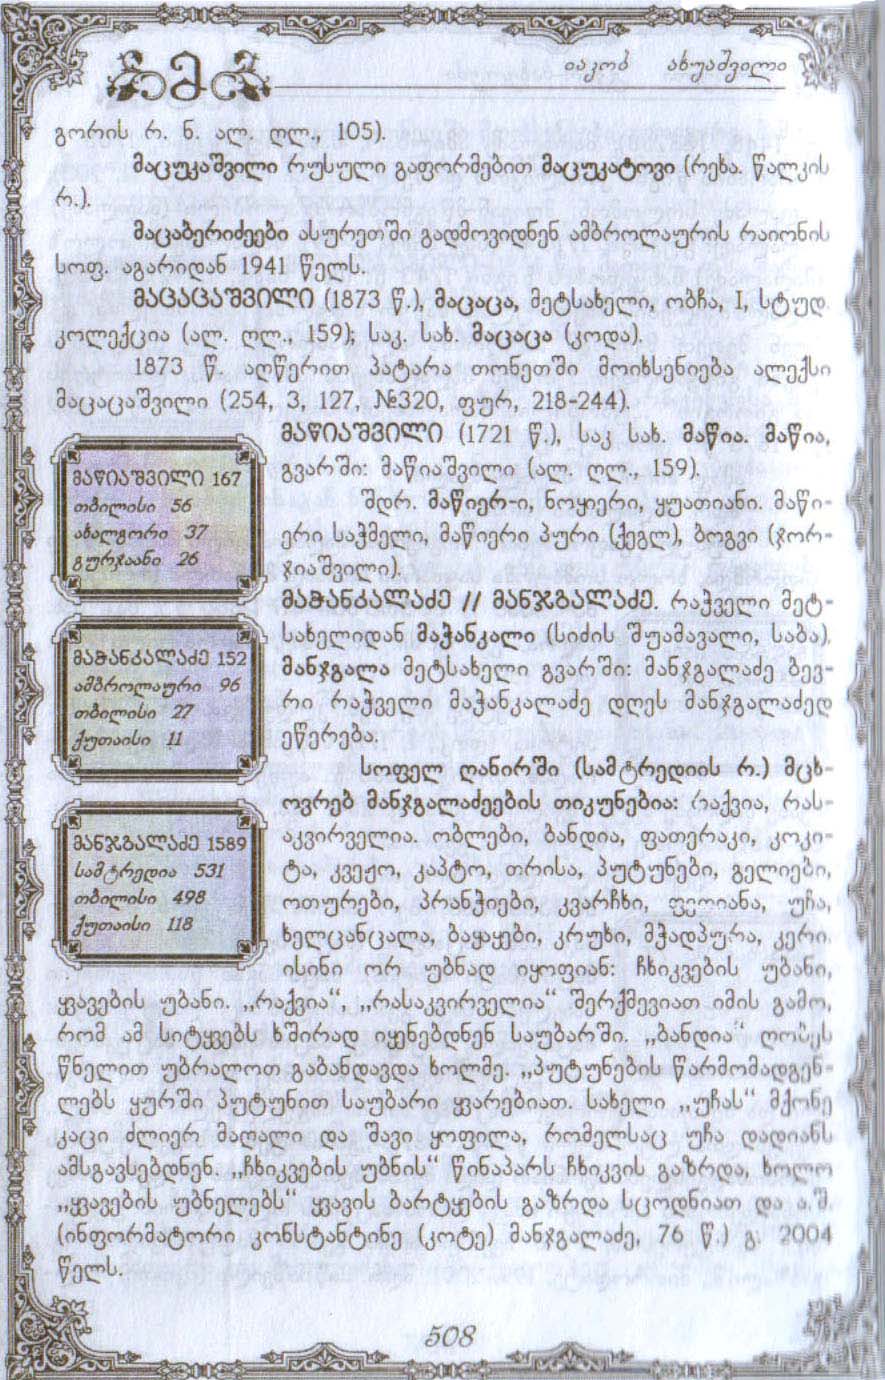 მ
იაკობ ახუაშვილი
გორის რ. ნ. ალ. ღლ., 105).
მაცუკაშვილი რუსული გაფორმებით მაცუკატოვი (რეხა. წალკის
რ.).
მაცაბერიძეები ასურეთში გადმოვიდნენ ამბროლაურის რაიონის
სოფ. აგარიდან 1941 წელს.
მაცაცაშვილი (1873 წ.), მაცაცა, მეტსახელი, ობჩა, I, სტუდ.
კოლექცია (ალ. ღლ., 159), საკ. სახ. მაცაცა (კოდა).
1873 წ. აღწერით პატარა თონეთში მოიხსენიება ალექსი
მაცაცაშვილი (254, 3, 127, №320, ფურ, 218-244).
მაწიაშვილი (1721 წ.), საკ სახ. მაწია. მაწია,
გვარში: მაწიაშვილი (ალ. ღლ., 159).
შდრ. მაწიერ-ი, ნოყიერი, ყუათიანი. მაწი-
ერი საჭმელი, მაწიერი პური (ქეგლ), ბოგვი (ჯორ-
ჯიაშვილი).
მაჭანკალაძე // მანჯგალაძე. რაჭველი მეტ-
სახელიდან მაჭანკალი (სიძის შუამავალი, საბა),
მანჯგალა მეტსახელი გვარში: მანჯგალაძე ბევ-
რი რაჭველი მაჭანკალაძე დღეს მანჯგალაძედ
ეწერება.
სოფელ ღანირში (სამტრედიის რ.) მცხ-
ოვრებ მანჯგალაძეების თიკუნებია: რაქვია, რას-
აკვირველია. ობლები, ბანდია, ფათერაკი, კოკი-
ტა, კვეჟო, კაპტო, თრისა, პუტუნები, გელიები,
ოთურები, პრანჭიები, კვარჩხი, უჩა,
ხელცანცალა, ბაყაყები, კრუხი, მჭადპურა, კერი.
ისინი ორ უბნად იყოფიან: ჩხიკვების უბანი,
ყვავების უბანი. „რაქვია“, „რასაკვირველია“ შერქმევიათ იმის გამო,
რომ ამ სიტყვებს ხშირად იყენებდნენ საუბარში. „ბანდია“ ღობეს
წნელით უბრალოთ გაბანდავდა ხოლმე. „პუტუნების წარმომადგენ-
ლებს ყურში პუტუნით საუბარი ყვარებიათ. სახელი „უჩას“ მქონე
კაცი ძლიერ მაღალი და შავი ყოფილა, რომელსაც უჩა დადიანს
ამსგავსებდნენ. „ჩხიკვების უბნის“ წინაპარს ჩხიკვის გაზრდა, ხოლო
„ყვავების უბნელებს“ ყვავის ბარტყების გაზრდა სცოდნიათ და ა.შ.
(ინფორმატორი კონსტანტინე (კოტე) მანჯგალაძე, 76 წ.) გ. 2004
წელს.
მაწიაშვილი 167
თბილისი 56
ახალგორი 37
გურჯაანი 26
მაჭანკალაძე 152
ამბროლაური 96
თბილისი 27
ქუთაისი 11
მანჯგალაძე 1589
სამტრედია 531
თბილისი 498
ქუთაისი 118
508